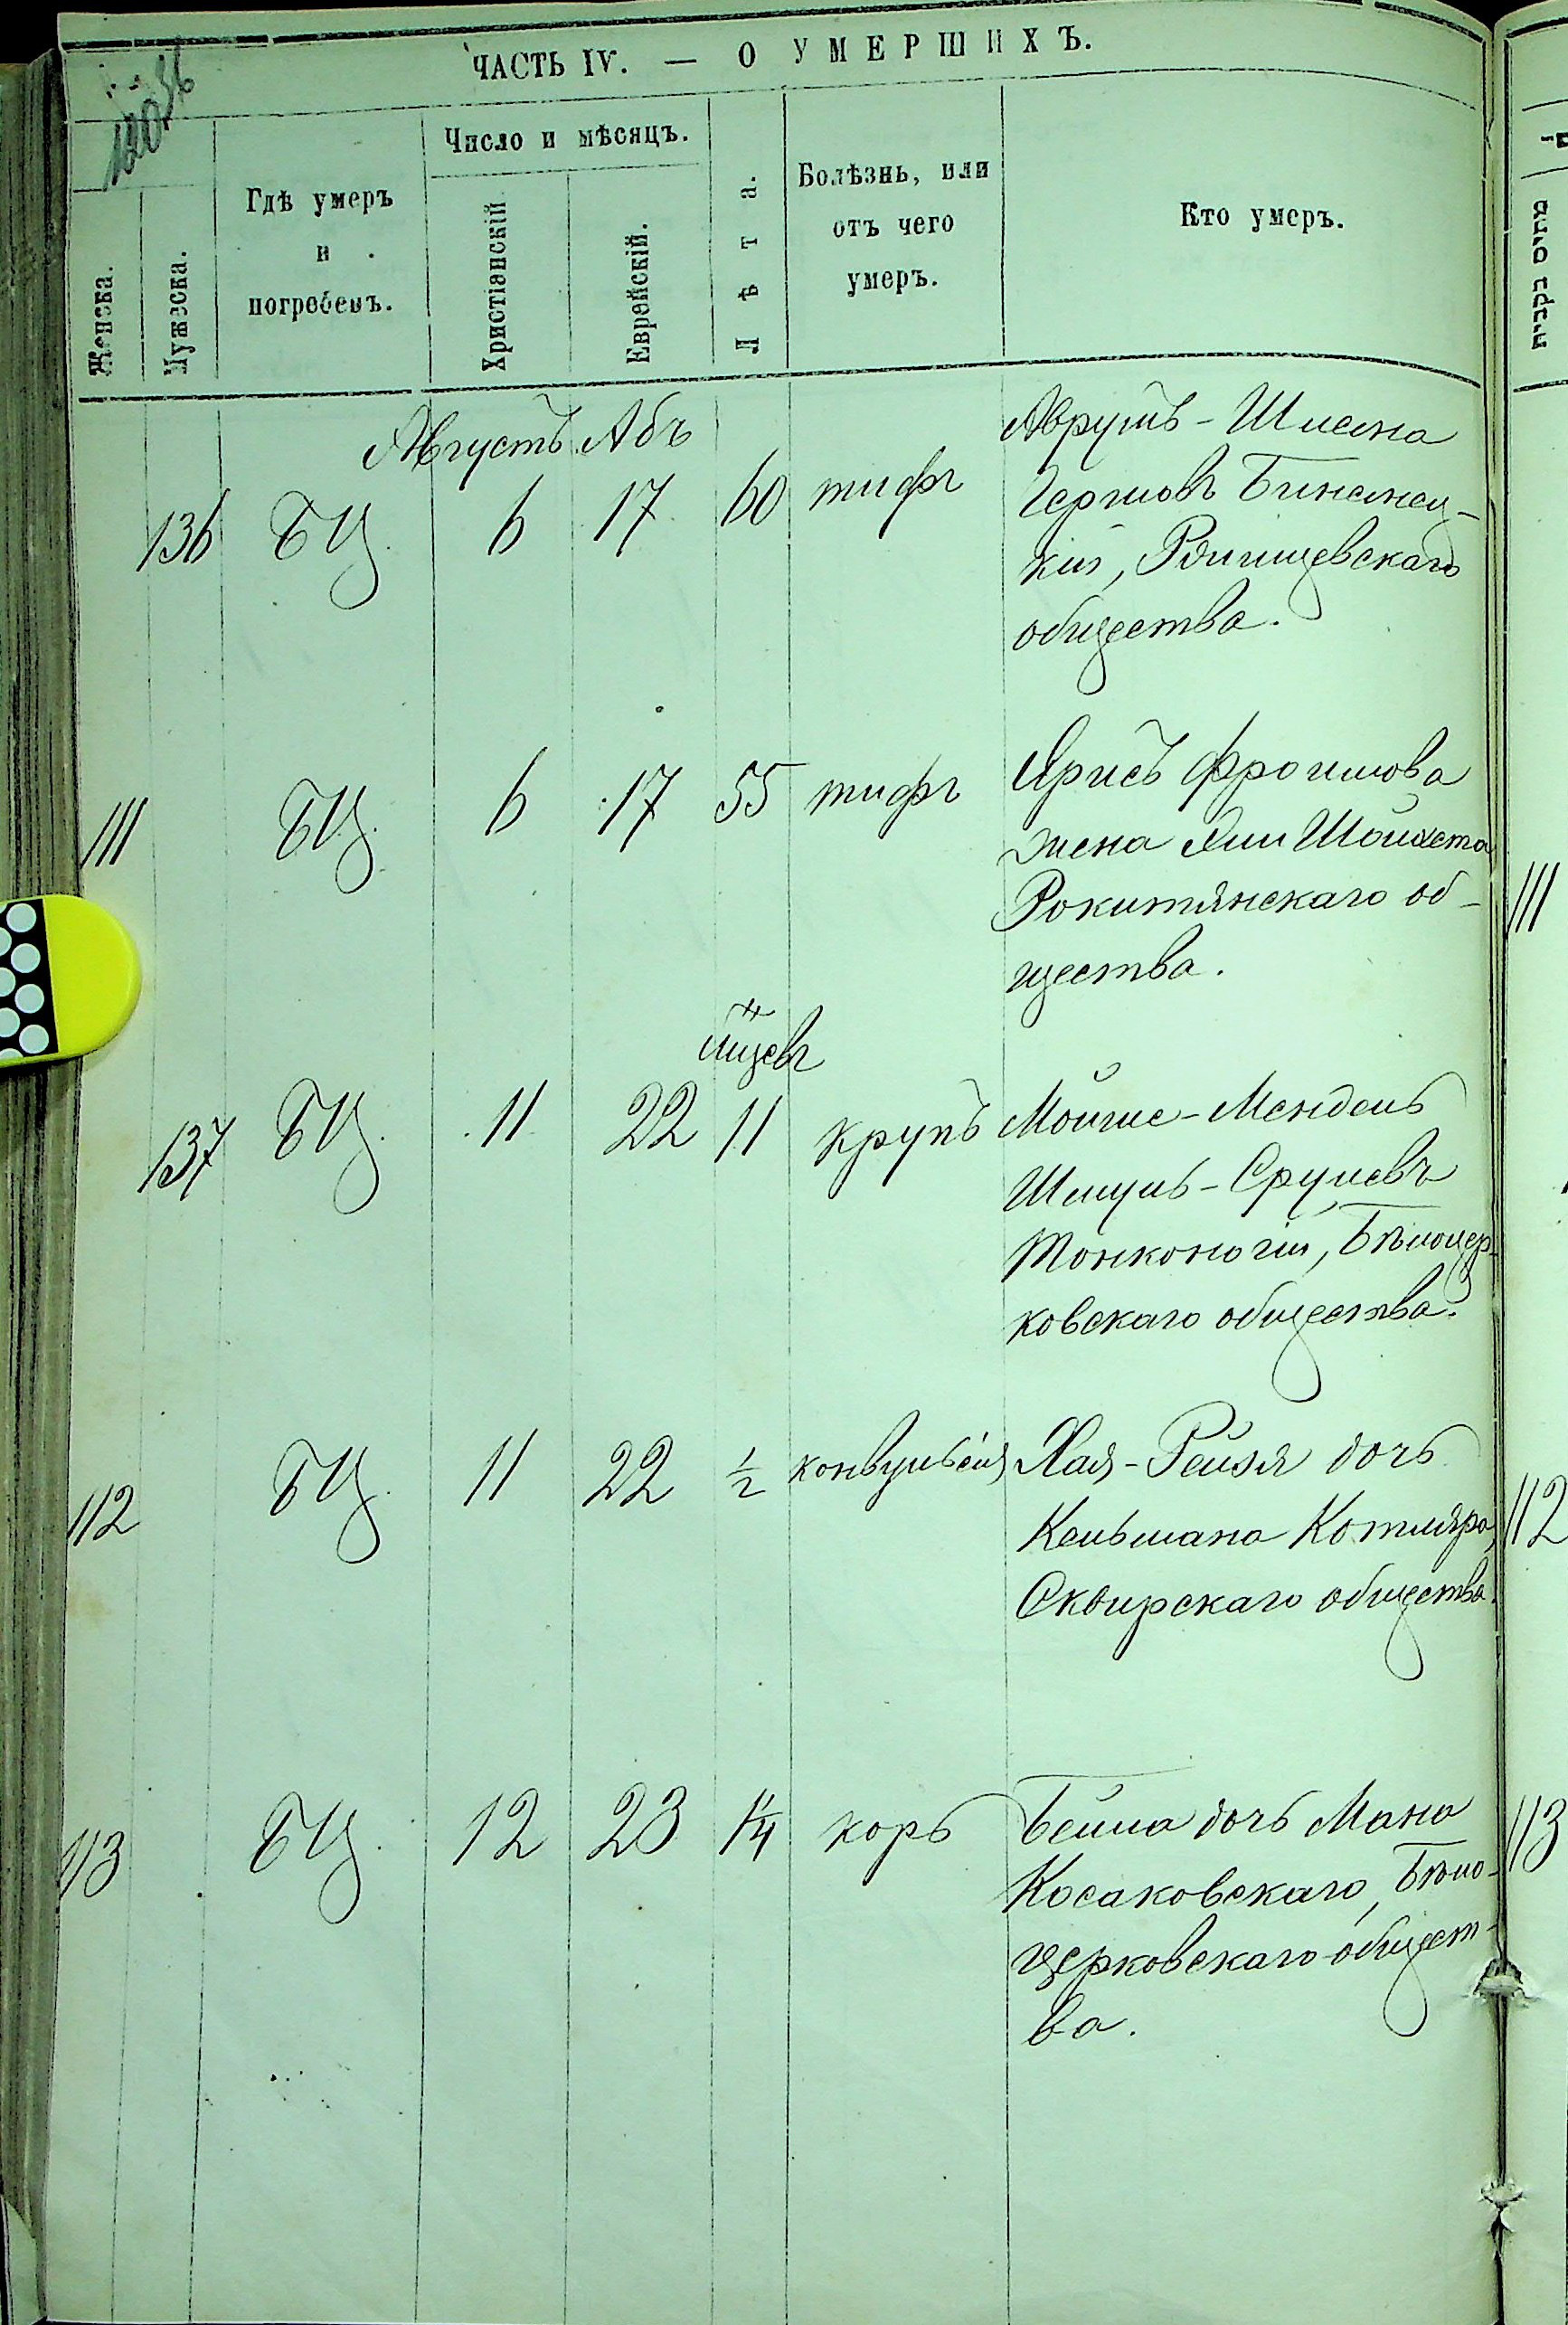 ЧАСТЬ IV. — О УМЕРШИХЪ.
Женска.
Мужеска.
Гдѣ умеръ
и
погребенъ.
Число и мѣсяцъ.
Христіанскій
Еврейскій.
Лѣта.
Болѣзнь, или
отъ чего
умеръ.
Кто умеръ.
Августъ Абъ
136 БЦ. 6 17 60 тифъ
Аврумъ-Шлема
Гершовъ
кій, Ржищевскаго
общества.
111 БЦ. 6 17 55 тифъ
Фроимова
жена Шойхета
Рокитянскаго об-
щества.
137 БЦ. 11 22 11 крупъ Мойше-Мендель
Шмуль-Срулевъ
Тонконогій, Бѣлоцер-
ковскаго общества.
112 БЦ. 11 22 1/2 конвульсія Хая-Рейзя дочь
Кельмана Котляра,
Сквирскаго общества.
113 БЦ. 12 23 1 1/4 корь Бейла дочь Мана
Косаковскаго, Бѣло-
церковскаго общест-
ва.
111
112
113